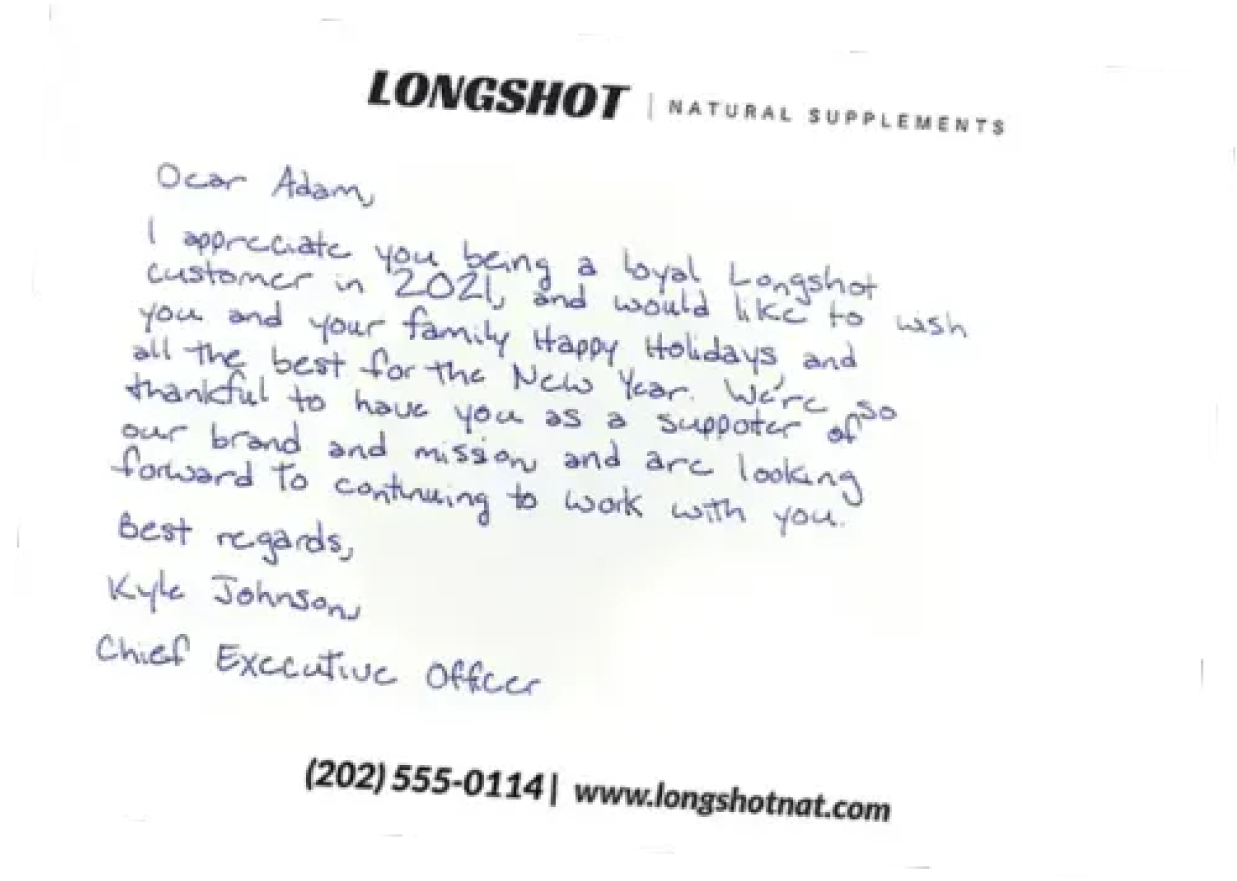 LONGSHOT | NATURAL SUPPLEMENTS
Dear Adam,
I appreciate you being a loyal Longshot
customer in 2021, and would like to wish
you and your family Happy Holidays and
all the best for the New Year. We're so
thankful to have you as a suppoter of
our brand and mission and are looking
forward to continuing to work with you.
Best regards,
Kyle Johnson,
Chief Executive Officer
(202) 555-0114 | www.longshotnat.com